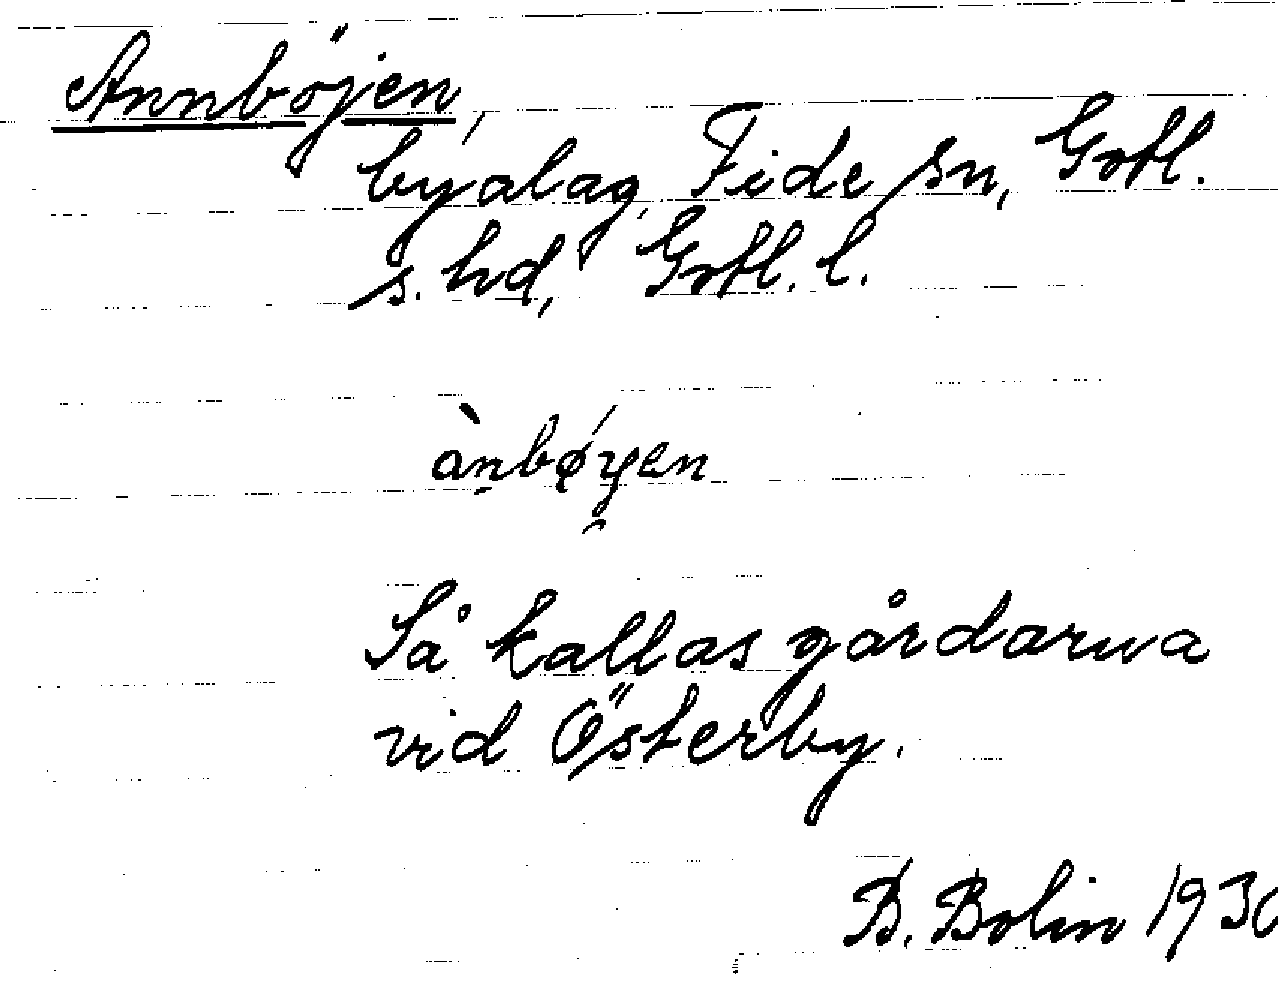 Annböjen
byalag, Fide sn, Gotl.
s. hd, Gotl. l.
ànbǿyen
Så kallas gårdarna
vid Österby.
B. Bolin 1930